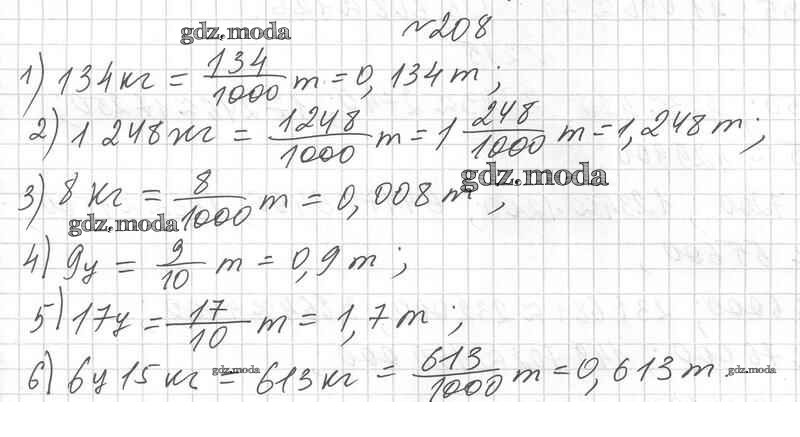 gdz.moda
№208
1) 134кг = 134/1000 т = 0,134 т;
2) 1 248 кг = 1248/1000 т = 1 248/1000 т = 1,248 т;
gdz.moda
3) 8 кг = 8/1000 т = 0,008 т;
gdz.moda
4) 9ц = 9/10 т = 0,9 т;
5) 17ц = 17/10 т = 1,7 т;
6) 6ц 15 кг = 613 кг = 613/1000 т = 0,613 т.
gdz.moda gdz.moda gdz.moda